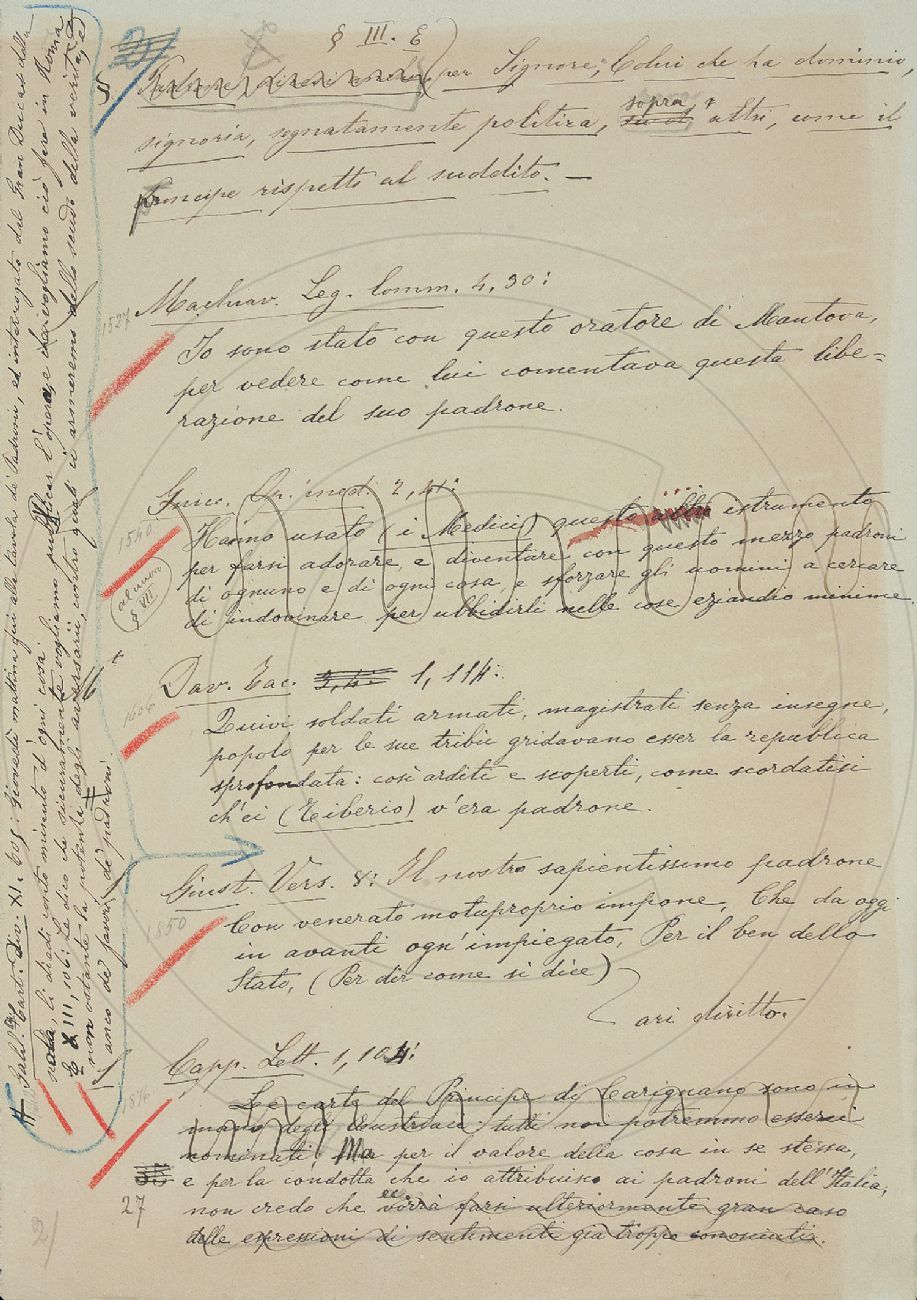 § III. E
§ per Signore; Colui che ha dominio,
signoria, segnatamente politica, sopra altri, come il
principe rispetto al suddito. —
1527
Machiav. Leg. Comm. 4, 30:
Io sono stato con questo oratore di Mantova,
per vedere come lui comentava questa libe=
razione del suo padrone.
1540
Guicc. Op. ined. 2, 41:
Hanno usato (i Medici) questo istrumento
per farsi adorare, e diventare con questo mezzo padroni
di ognuno e di ogni cosa, e sforzare gli uomini a cercare
di indovinare per ubbidirli nelle cose eziandio minime.
al nuovo
§ VII
Dav. Tac. 1, 114:
1606
Quivi soldati armati, magistrati senza insegne,
popolo per le sue tribù gridavano esser la republica
sprofondata: così arditi e scoperti, come scordatisi
ch'ei (Tiberio) v'era padrone.
Giust. Vers. 8: Il nostro sapientissimo padrone
1850
Con venerato motuproprio impone, Che da oggi
in avanti ogn'impiegato, Per il ben dello
Stato, (Per dir come si dice)
ari diritto.
Capp. Lett. 1, 104:
1816
Le carte del Principe di Carignano sono in
mano degli Austriaci; tutti noi potremmo esserci
nominati, Ma per il valore della cosa in se stessa,
e per la condotta che io attribuisco ai padroni dell'Italia,
27
non credo che vorrà farsi ulteriormente gran caso
delle espressioni di sentimenti già troppo conosciuti.
2/
Galil. Cart. Div. XI. 605: Giovedì mattina fui alla tavola de' Padroni, ed interrogato dal Gran Duca et dalla
li diedi conto minuto d'ogni cosa.
E XIII, 106: Le dico che sicuramente vogliamo pubblicar l'opera, e che vogliamo ciò fare in Roma
non ostante la potenza degli avversarii, contro i quali ci armeremo dello scudo della verità, et
anco de' favori de' padroni.